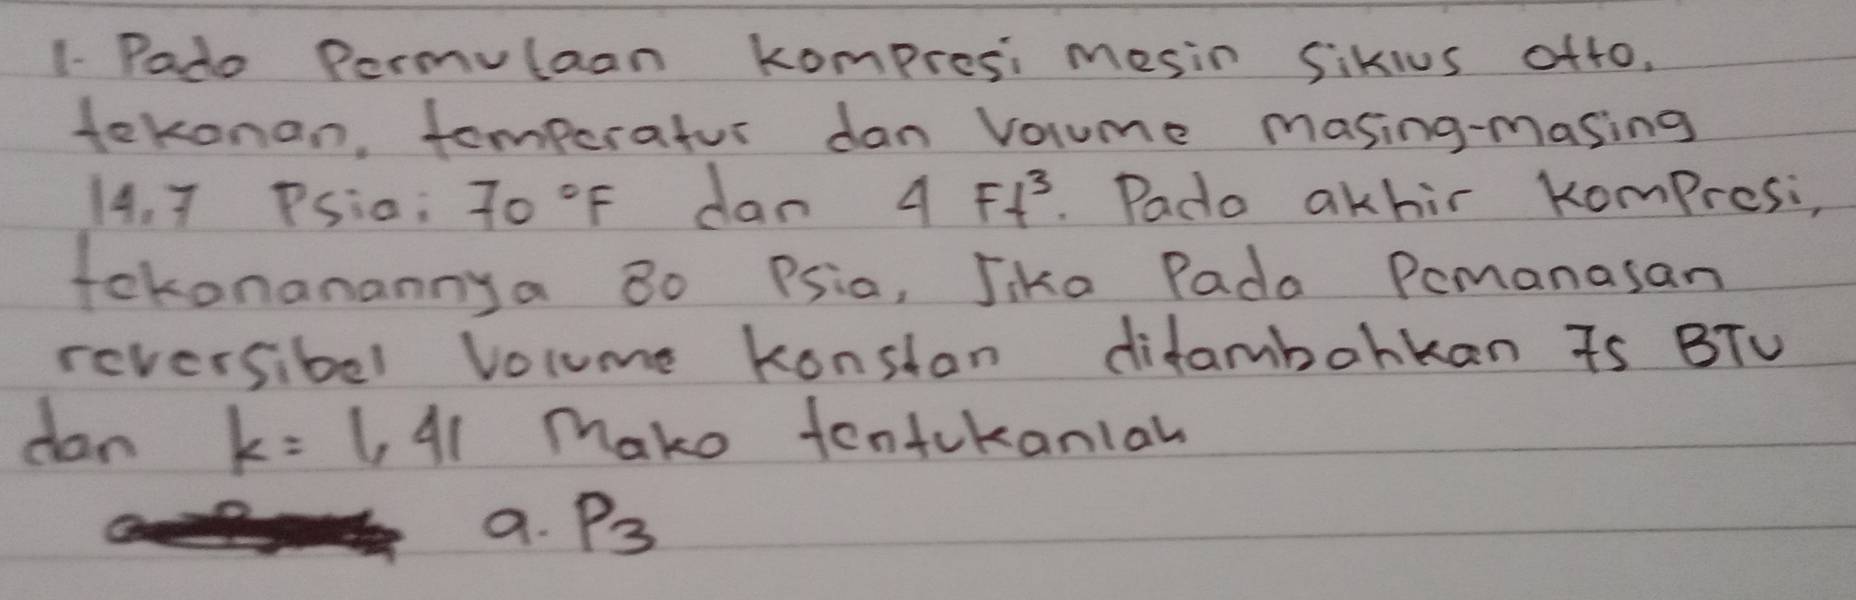 1. Pada Permulaan kompresi mesin siklus otto,
tekanan, temperatur dan Volume masing-masing
14,7 Psia; 70 °F dan 4 Ft³. Pada akhir kompresi,
tekananannya 80 Psia, Jika Pada Pemanasan
reversibel Volume konstan ditambahkan 75 BTU
dan k = 1,41 Maka tentukanlah
a. P3